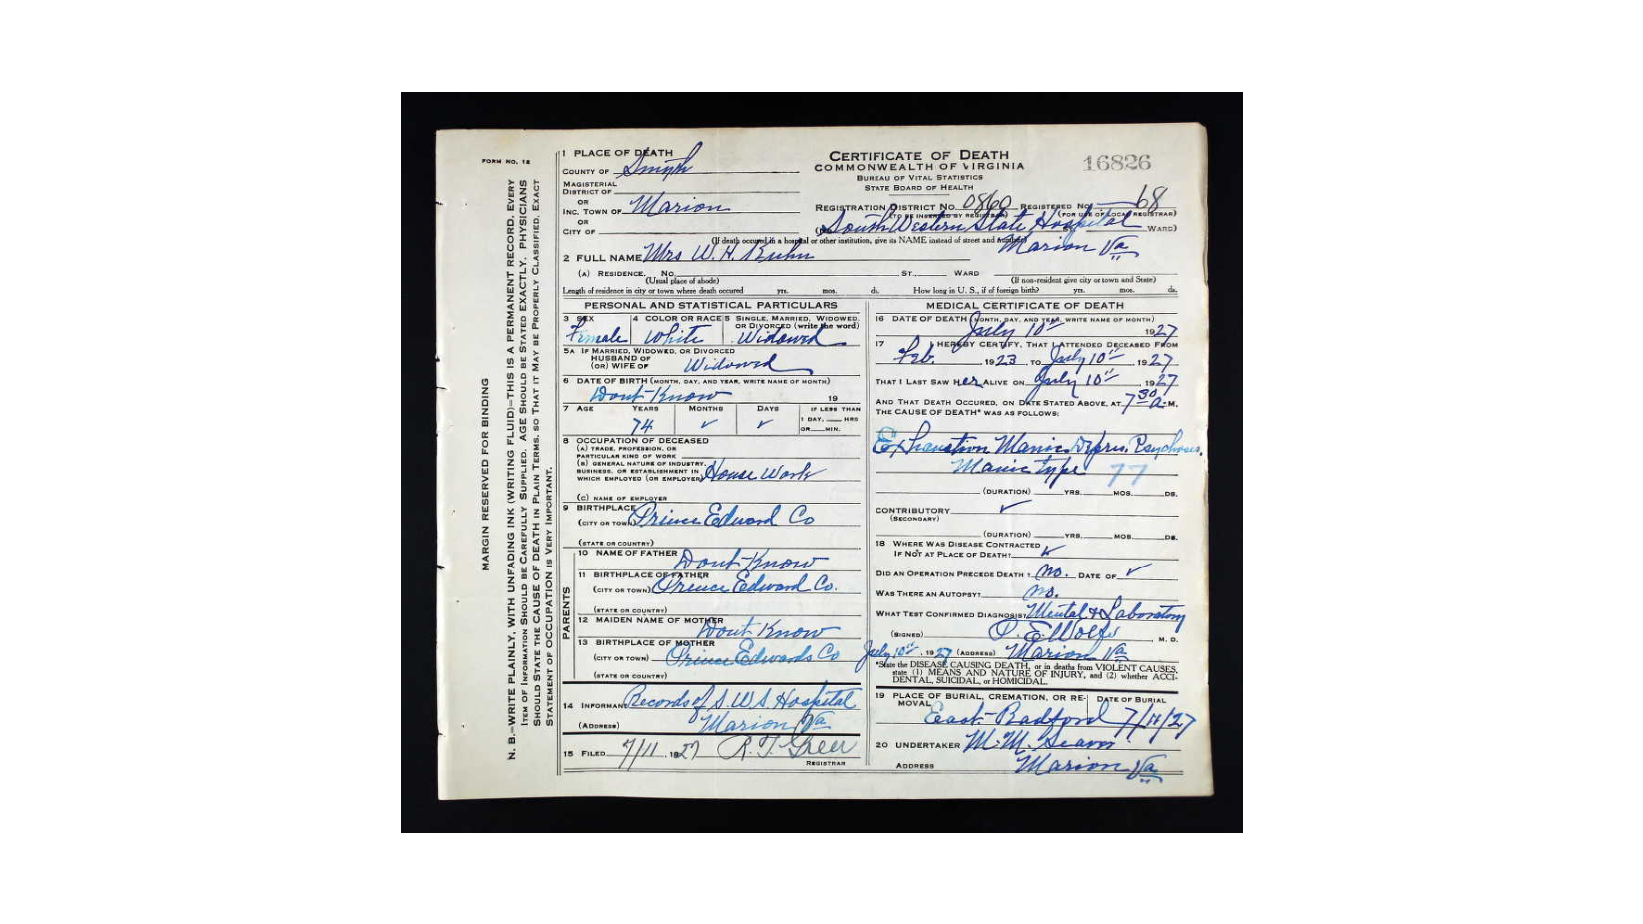 FORM NO. 12
MARGIN RESERVED FOR BINDING
N. B.—WRITE PLAINLY, WITH UNFADING INK (WRITING FLUID)—THIS IS A PERMANENT RECORD. EVERY
ITEM OF INFORMATION SHOULD BE CAREFULLY SUPPLIED. AGE SHOULD BE STATED EXACTLY. PHYSICIANS
SHOULD STATE THE CAUSE OF DEATH IN PLAIN TERMS, SO THAT IT MAY BE PROPERLY CLASSIFIED. EXACT
STATEMENT OF OCCUPATION IS VERY IMPORTANT.
1 PLACE OF DEATH
COUNTY OF Smyth
MAGISTERIAL
DISTRICT OF
OR
INC. TOWN OF Marion
OR
CITY OF
CERTIFICATE OF DEATH
COMMONWEALTH OF VIRGINIA
BUREAU OF VITAL STATISTICS
STATE BOARD OF HEALTH
16826
REGISTRATION DISTRICT NO. 0860 REGISTERED NO. 68
(TO BE INSERTED BY REGISTRAR) (FOR USE OF LOCAL REGISTRAR)
South Western State Hospital WARD)
(If death occured in a hospital or other institution, give its NAME instead of street and number) Marion Va
2 FULL NAME Mrs W. H. Kuhn
(A) RESIDENCE. No. ST., WARD
(Usual place of abode) (If non-resident give city or town and State)
Length of residence in city or town where death occured yrs. mos. ds. How long in U. S., if of foreign birth? yrs. mos. ds.
PERSONAL AND STATISTICAL PARTICULARS
3 SEX 4 COLOR OR RACE 5 SINGLE, MARRIED, WIDOWED,
OR DIVORCED (write the word)
Female White Widowed
5A IF MARRIED, WIDOWED, OR DIVORCED
HUSBAND OF
(OR) WIFE OF Widowed
6 DATE OF BIRTH (MONTH, DAY, AND YEAR, WRITE NAME OF MONTH)
Dont Know 19
7 AGE YEARS MONTHS DAYS IF LESS THAN
1 DAY, HRS
OR MIN.
74
8 OCCUPATION OF DECEASED
(A) TRADE, PROFESSION, OR
PARTICULAR KIND OF WORK
(B) GENERAL NATURE OF INDUSTRY,
BUSINESS, OR ESTABLISHMENT IN
WHICH EMPLOYED (OR EMPLOYER) House Work
(C) NAME OF EMPLOYER
9 BIRTHPLACE
(CITY OR TOWN) Prince Edward Co
(STATE OR COUNTRY)
PARENTS
10 NAME OF FATHER Dont Know
11 BIRTHPLACE OF FATHER
(CITY OR TOWN) Prince Edward Co.
(STATE OR COUNTRY)
12 MAIDEN NAME OF MOTHER Dont Know
13 BIRTHPLACE OF MOTHER
(CITY OR TOWN) Prince Edwards Co
(STATE OR COUNTRY)
14 INFORMANT Records of S. W. S Hospital
(ADDRESS) Marion Va
15 FILED 7/11 1927 R. T. Greer
REGISTRAR
MEDICAL CERTIFICATE OF DEATH
16 DATE OF DEATH (MONTH, DAY, AND YEAR, WRITE NAME OF MONTH)
July 10th 1927
17 I HEREBY CERTIFY, THAT I ATTENDED DECEASED FROM
Feb. 1923 TO July 10th 1927
THAT I LAST SAW Her ALIVE ON July 10th 1927
AND THAT DEATH OCCURED, ON DATE STATED ABOVE, AT 7 30 A. M.
THE CAUSE OF DEATH* WAS AS FOLLOWS:
Exhaustion Manic Depres. Psychoses,
Manic type 77
(DURATION) YRS. MOS. DS.
CONTRIBUTORY
(SECONDARY)
(DURATION) YRS. MOS. DS.
18 WHERE WAS DISEASE CONTRACTED
IF NOT AT PLACE OF DEATH?
DID AN OPERATION PRECEDE DEATH? No. DATE OF
WAS THERE AN AUTOPSY? No.
WHAT TEST CONFIRMED DIAGNOSIS? Mental & Laboratory
(SIGNED) E Wolfe M. D.
July 10th, 1927 (ADDRESS) Marion Va
*State the DISEASE CAUSING DEATH, or in deaths from VIOLENT CAUSES,
state (1) MEANS AND NATURE OF INJURY, and (2) whether ACCI-
DENTAL, SUICIDAL, or HOMICIDAL.
19 PLACE OF BURIAL, CREMATION, OR RE- DATE OF BURIAL
MOVAL
East Radford 7/11/27
20 UNDERTAKER M. M. Seaver
ADDRESS Marion Va